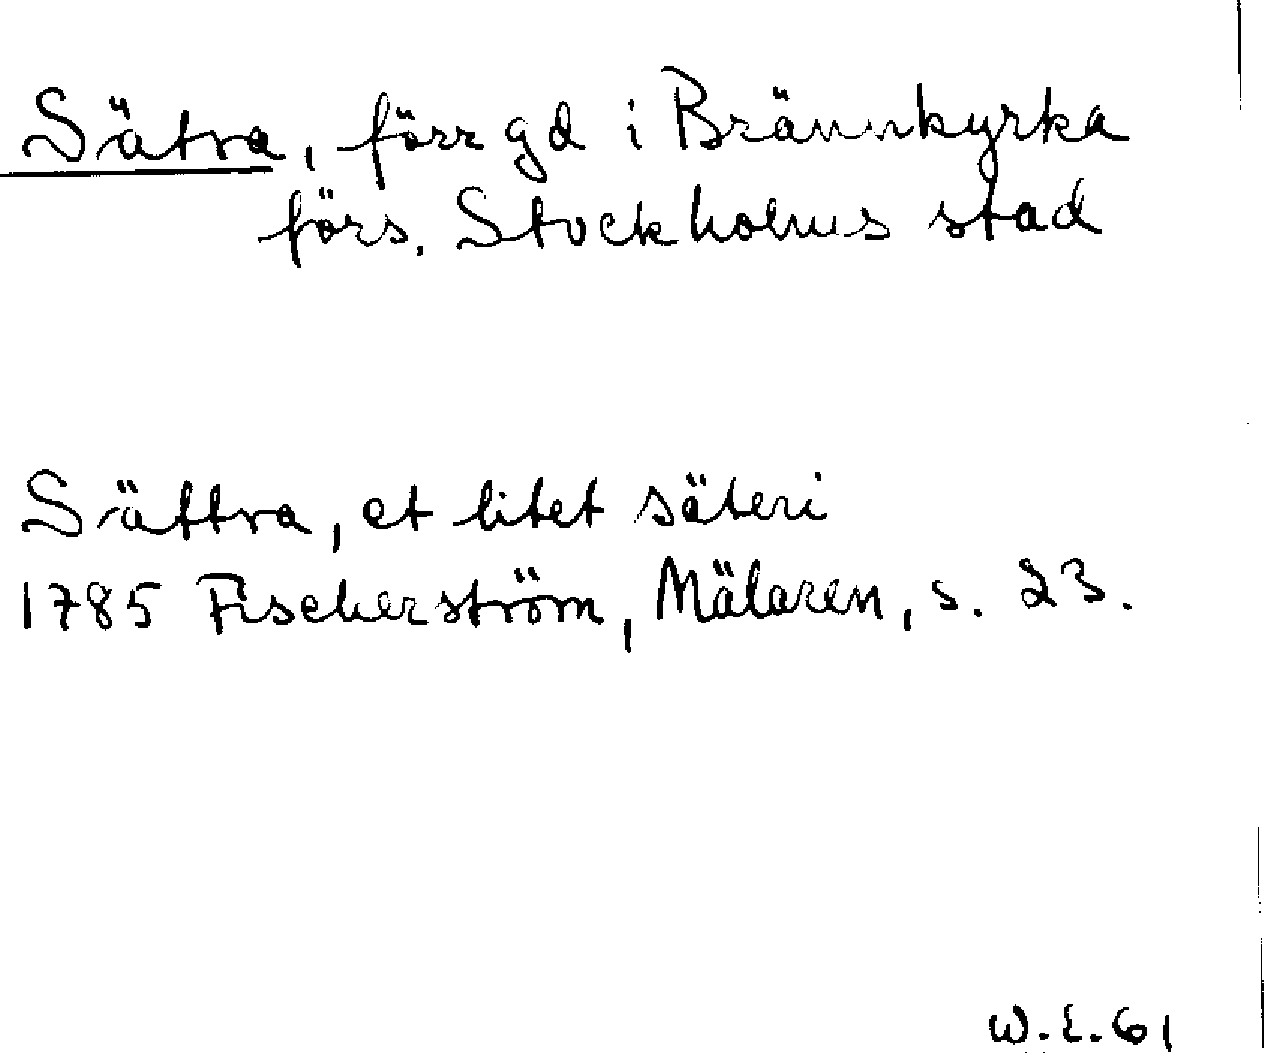 Sätra, förr gd i Brännkyrka
förs. Stockholms stad
Sättra, et litet säteri
1785 Fischerström, Mälaren, s. 23.
W.E. 61